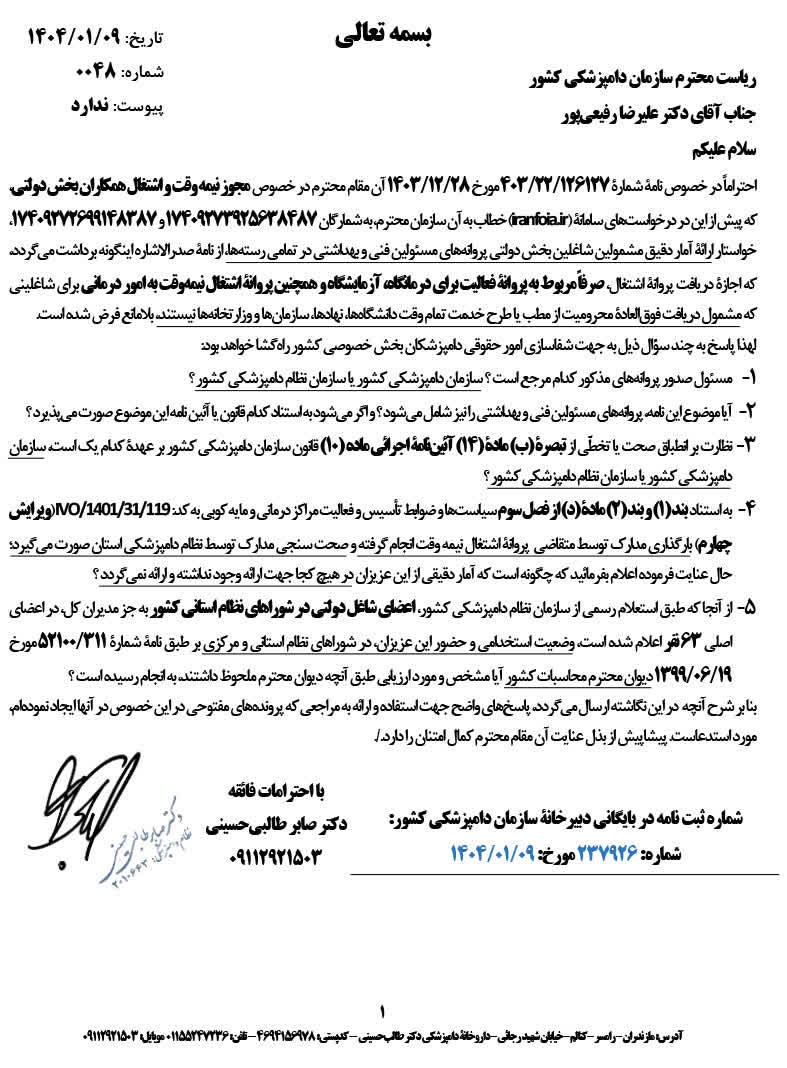 بسمه تعالی
تاریخ: ۱۴۰۴/۰۱/۰۹
شماره: ۰۰۴۸
پیوست: ندارد
ریاست محترم سازمان دامپزشکی کشور
جناب آقای دکتر علیرضا رفیعی‌پور
سلام علیکم
احتراماً در خصوص نامۀ شمارۀ ۴۰۳/۲۲/۱۲۶۱۲۷ مورخ ۱۴۰۳/۱۲/۲۸ آن مقام محترم در خصوص مجوز نیمه وقت و اشتغال همکاران بخش دولتی،
که پیش از این در درخواست‌های سامانۀ (iranfoia.ir) خطاب به آن سازمان محترم، به شمارگان ۱۷۴۰۹۲۷۳۹۲۵۶۳۸۴۸۷ و ۱۷۴۰۹۲۷۲۶۹۹۱۴۸۳۸۷،
خواستار ارائۀ آمار دقیق مشمولین شاغلین بخش دولتی پروانه‌های مسئولین فنی و بهداشتی در تمامی رسته‌ها، از نامۀ صدرالاشاره اینگونه برداشت می‌گردد،
که اجازۀ دریافت پروانۀ اشتغال، صرفاً مربوط به پروانۀ فعالیت برای درمانگاه، آزمایشگاه و همچنین پروانۀ اشتغال نیمه‌وقت به امور درمانی برای شاغلینی
که مشمول دریافت فوق‌العادۀ محرومیت از مطب یا طرح خدمت تمام وقت دانشگاه‌ها، نهادها، سازمان‌ها و وزارتخانه‌ها نیستند، بلامانع فرض شده است.
لهذا پاسخ به چند سؤال ذیل به جهت شفاسازی امور حقوقی دامپزشکان بخش خصوصی کشور راه‌گشا خواهد بود:
۱- مسئول صدور پروانه‌های مذکور کدام مرجع است؟ سازمان دامپزشکی کشور یا سازمان نظام دامپزشکی کشور؟
۲- آیا موضوع این نامه، پروانه‌های مسئولین فنی و بهداشتی را نیز شامل می‌شود؟ و اگر می‌شود به استناد کدام قانون یا آئین نامه این موضوع صورت می‌پذیرد؟
۳- نظارت بر انطباق صحت یا تخطّی از تبصرۀ (ب) مادۀ (۱۴) آئین‌نامۀ اجرائی ماده (۱۰) قانون سازمان دامپزشکی کشور بر عهدۀ کدام یک است، سازمان
دامپزشکی کشور یا سازمان نظام دامپزشکی کشور؟
۴- به استناد بند (۱) و بند (۲) مادۀ (د) از فصل سوم سیاست‌ها و ضوابط تأسیس و فعالیت مراکز درمانی و مایه کوبی به کد: IVO/1401/31/119 (ویرایش
چهارم) بارگذاری مدارک توسط متقاضی پروانۀ اشتغال نیمه وقت انجام گرفته و صحت سنجی مدارک توسط نظام دامپزشکی استان صورت می‌گیرد؛
حال عنایت فرموده اعلام بفرمائید که چگونه است که آمار دقیقی از این عزیزان در هیچ کجا جهت ارائه وجود نداشته و ارائه نمی‌گردد؟
۵- از آنجا که طبق استعلام رسمی از سازمان نظام دامپزشکی کشور، اعضای شاغل دولتی در شوراهای نظام استانی کشور به جز مدیران کل، در اعضای
اصلی ۶۳ نفر اعلام شده است، وضعیت استخدامی و حضور این عزیزان، در شوراهای نظام استانی و مرکزی بر طبق نامۀ شمارۀ ۵۲۱۰۰/۳۱۱ مورخ
۱۳۹۹/۰۶/۱۹ دیوان محترم محاسبات کشور آیا مشخص و مورد ارزیابی طبق آنچه دیوان محترم ملحوظ داشتند، به انجام رسیده است؟
بنا بر شرح آنچه در این نگاشته ارسال می‌گردد، پاسخ‌های واضح جهت استفاده و ارائه به مراجعی که پرونده‌های مفتوحی در این خصوص در آنها ایجاد نموده‌ام،
مورد استدعاست. پیشاپیش از بذل عنایت آن مقام محترم کمال امتنان را دارد./.
با احترامات فائقه
دکتر صابر طالبی‌حسینی
۰۹۱۱۲۹۲۱۵۰۳
دکتر صابر طالبی حسینی
نظام دامپزشکی: ۲۰۱۰۶۶۳
شماره ثبت نامه در بایگانی دبیرخانۀ سازمان دامپزشکی کشور:
شماره: ۲۳۷۹۲۶ مورخ: ۱۴۰۴/۰۱/۰۹
۱
آدرس: مازندران – رامسر – کتالم – خیابان شهید رجائی – داروخانۀ دامپزشکی دکتر طالب‌حسینی – کدپستی: ۴۶۹۴۱۵۶۹۷۸ – تلفن: ۰۱۱۵۵۲۴۷۲۳۶ موبایل: ۰۹۱۱۲۹۲۱۵۰۳